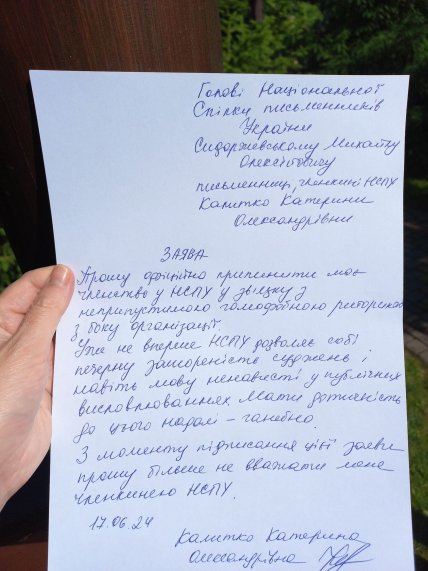 Голові Національної
Спілки письменників
України
Сидоржевському Михайлу
Олексійовичу
письменниці, членкині НСПУ
Калитко Катерини
Олександрівни
ЗАЯВА
Прошу офіційно припинити моє
членство у НСПУ у зв'язку з
неприпустимою гомофобною риторикою
з боку організації.
Уже не вперше НСПУ дозволяє собі
печерну зашореність суджень і
навіть мову ненависті у публічних
висловлюваннях. Мати дотичність
до цього надалі – ганебно.
З моменту підписання цієї заяви
прошу більше не вважати мене
членкинею НСПУ.
17.06.24
Калитко Катерина
Олександрівна